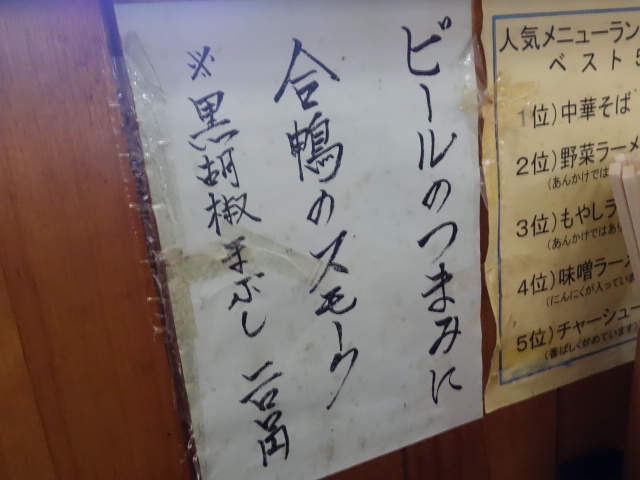 ビールのつまみに
合鴨のスモーク
※黒胡椒まぶし 円
人気メニューラン
ベスト5
1位)中華そば
2位)野菜ラーメ
(あんかけでは
3位)もやしラ
(あんかけではあ
4位)味噌ラー
(にんにくが入ってい
5位)チャーシュー
(香ばしく炒めています